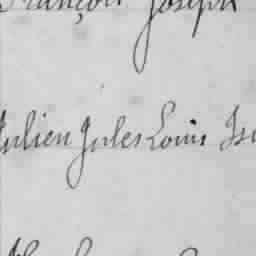 François Joseph
Julien Jules Louis